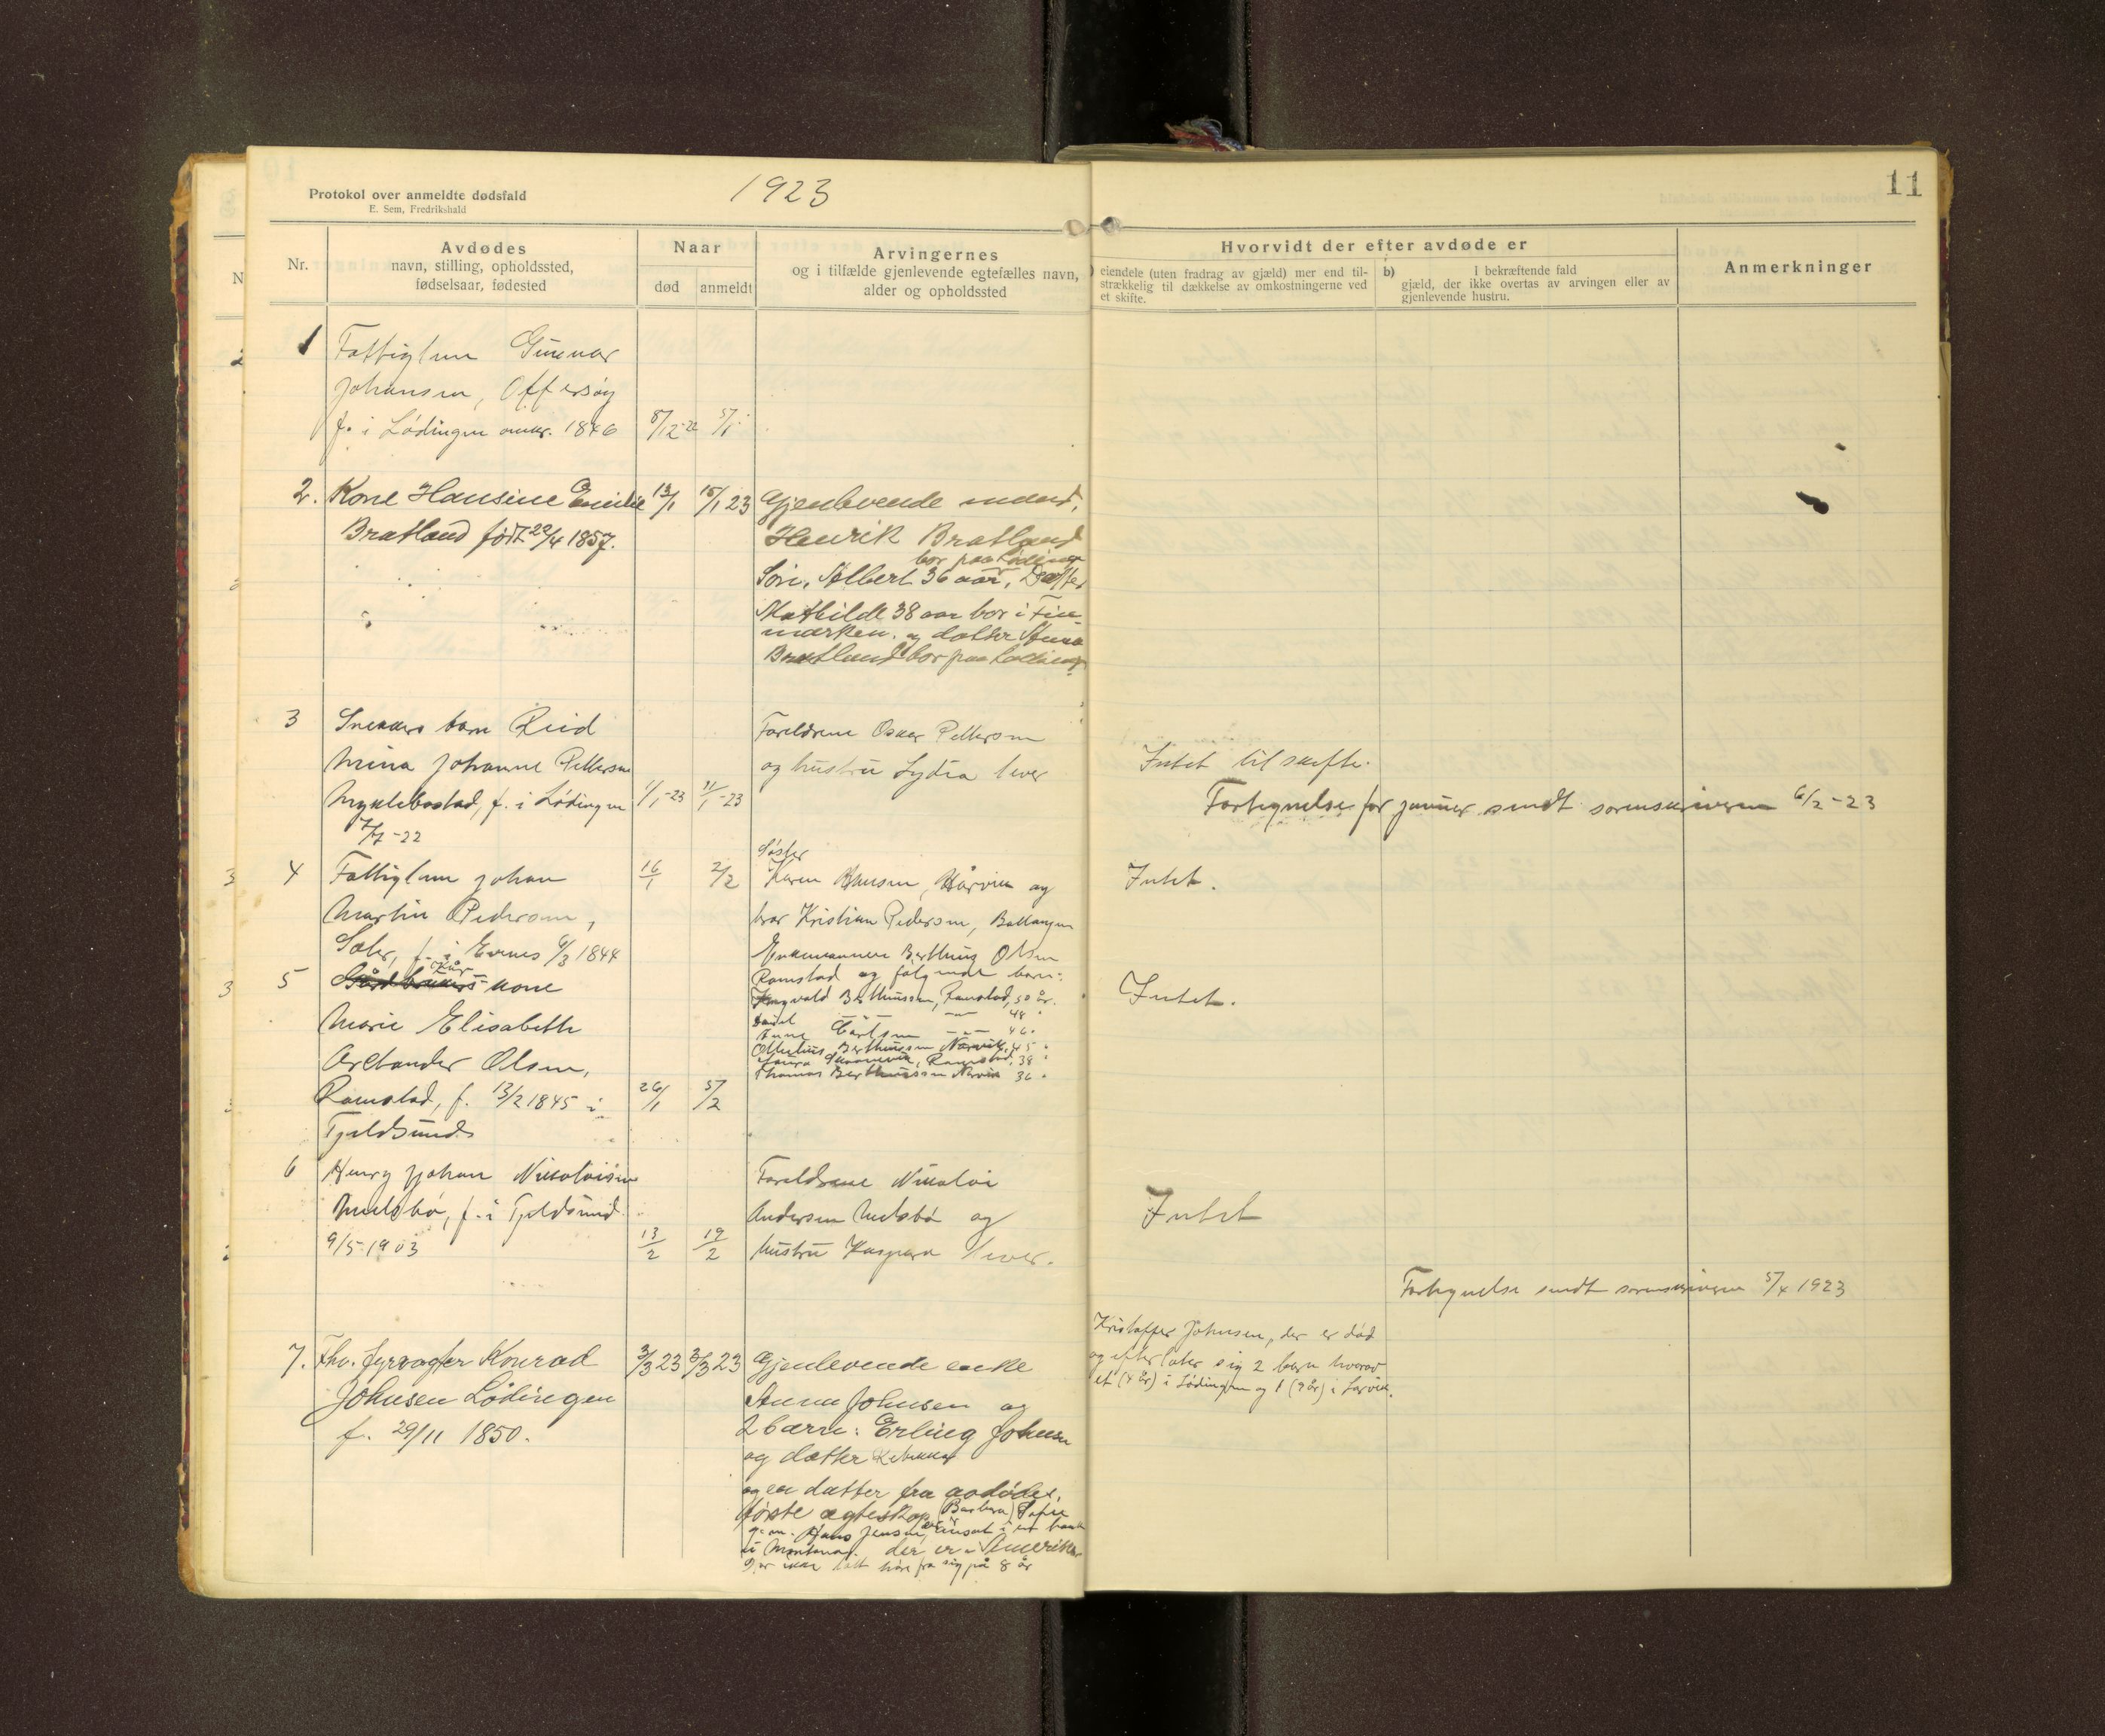 Protokol over anmeldte dødsfald
E. Sem, Fredrikshald
1923
11
Nr.
Avdødes
navn, stilling, opholdssted,
fødselsaar, fødested
Naar
død
anmeldt
Arvingernes
og i tilfælde gjenlevende egtefælles navn,
alder og opholdssted
Hvorvidt der efter avdøde er
eiendele (uten fradrag av gjæld) mer end til-
strækkelig til dækkelse av omkostningerne ved
et skifte.
b) I bekræftende fald
gjæld, der ikke overtas av arvingen eller av
gjenlevende hustru.
Anmerkninger
1 Fattiglem Gunnar
Johansen, Offersøy
f. i Lødingen omkr. 1846 8/12-22 5/1
2. Kone Hansine Emilie 13/1 15/1 23 Gjenlevende mand,
Bratland født 22/4 1857. Henrik Bratland
bor paa Lødingen
Søn, Albert 36 aar, Datter
Mathilde 38 aar bor i Fin-
marken. og datter Anna
Bratland bor paa Lødingen
3 Snekkers barn Reid Foreldrene Oskar Pettersen
Mina Johanne Pettersen og hustru Lydia lever Intet til skifte.
Myklebostad, f. i Lødingen 1/1-23 11/1-23 Fortegnelse for januar sendt sorenskriveren 6/2-23
7/7-22
Søster
4 Fattiglem Johan 16/1 2/2 Karen Hansen, Hårvik og Intet.
Martin Pedersen, bror Kristian Pedersen, Ballangen
Sæter, f. i Evenes 6/3 1844 Enkemannen Berthinus Olsen
Kår
5 Gårdbrukers kone Ramstad og følgende barn: Intet.
Ingvald Berthinussen, Ramstad, 50 år.
48 "
Marie Elisabeth Anna Carlsen 46 "
Berthinussen Narvik, 45 "
Arctander Olsen, Ramstad, 38 "
Thomas Berthinussen Narvik 36 "
Ramstad, f. 13/2 1845 i 26/1 5/2
Tjeldsund
6 Henry Johan Nikolaisen Foreldrene Nikolai
f. i Tjeldsund Andersen og Intet
9/5-1903 13/2 19/2 hustru Kaspara lever.
Fortegnelse sendt sorenskriveren 5/4 1923
Kristoffer Johnsen, der er død
7. Fhv. fyrvogter Konrad 3/3 23 3/3 23 Gjenlevende enke og efterlater sig 2 barn hvorav
et (4 år) i Lødingen og 1 (9 år) i Larvik.
Johnsen Lødingen Anna Johnsen og
f. 29/11 1850. 2 barn: Erling Johnsen
og datter
og en datter fra avdødes
første ægteskap, (Barbara) Sofie
g. m. Hans Jensen, ansat i en bank
i Montana. der er i Amerika
har ikke latt høre fra sig på 8 år